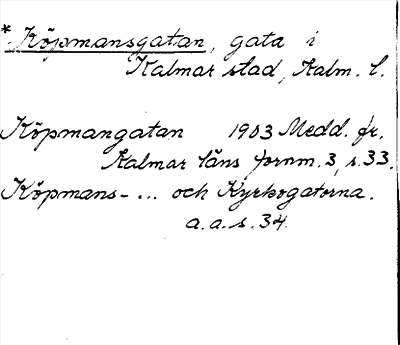 * Köpmansgatan, gata i
Kalmar stad, Kalm. l.
Köpmangatan 1903 Medd. fr.
Kalmar läns fornm. 3, s. 33.
Köpmans- ... och Kyrkogatorna.
a. a. s. 34.